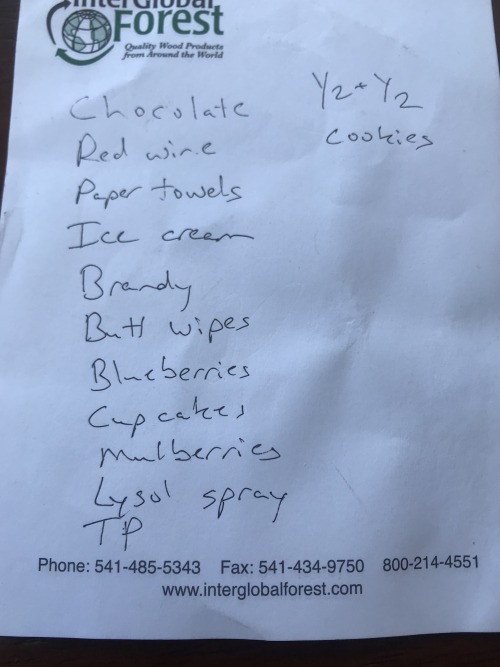 InterGlobal
Forest
Quality Wood Products
from Around the World
Chocolate
Red wine
Paper towels
Ice cream
Brandy
Butt wipes
Blueberries
Cupcakes
Mulberries
Lysol spray
TP
1/2 + 1/2
cookies
Phone: 541-485-5343 Fax: 541-434-9750 800-214-4551
www.interglobalforest.com